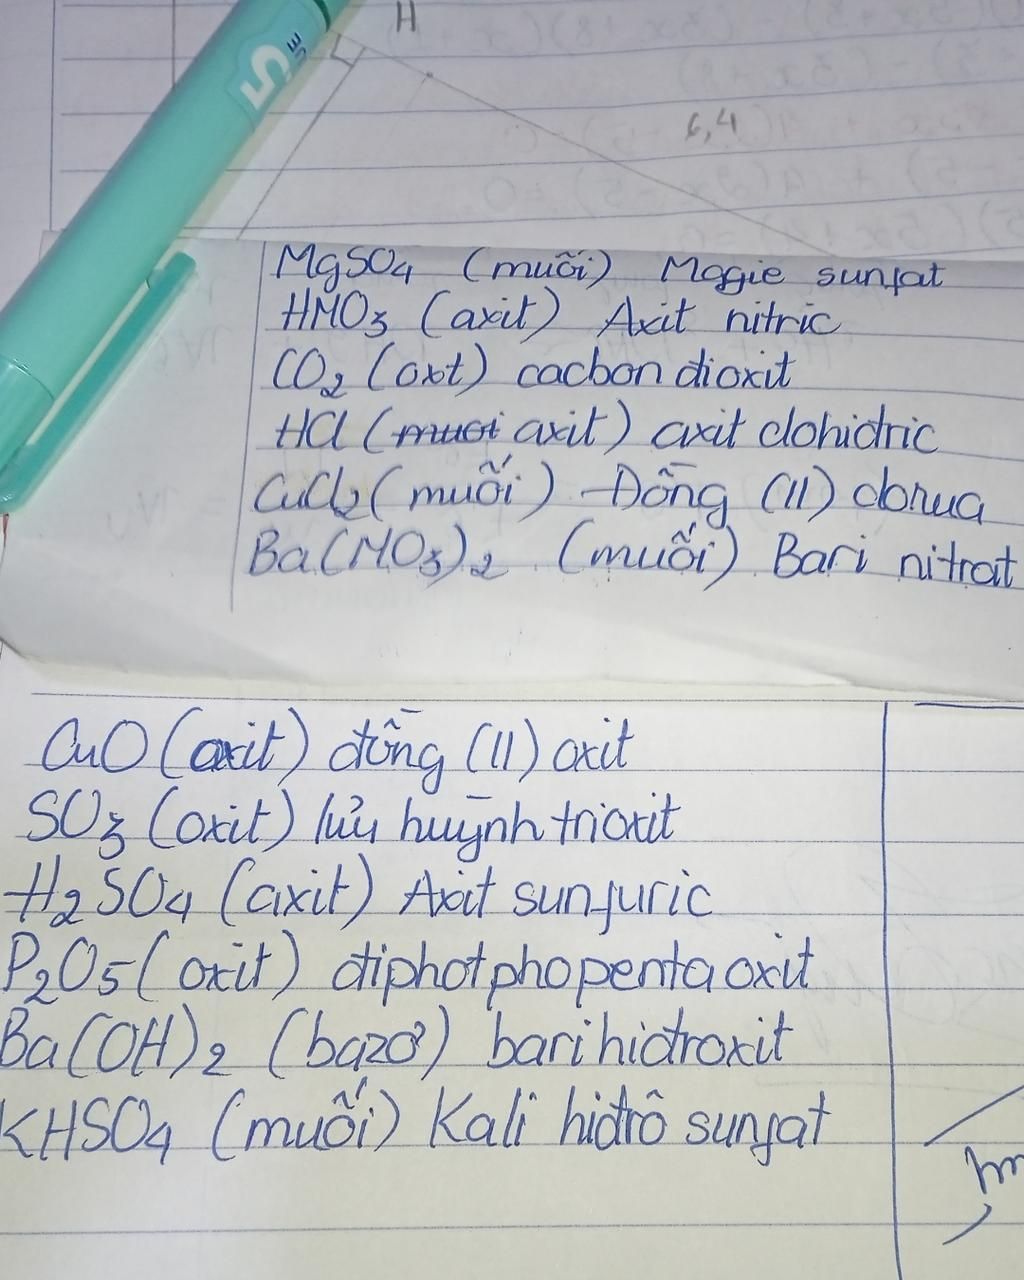 H
6,4
MgSO4 (muối) Magie sunfat
HNO3 (axit) Axit nitric
CO2 (oxt) cacbon dioxit
HCl (muoi axit) axit clohidric
CuCl2 (muối) Đồng (II) clorua
Ba(NO3)2 (muối) Bari nitrat
CuO (axit) đồng (II) oxit
SO3 (oxit) lưu huỳnh trioxit
H2SO4 (axit) Axit sunfuric
P2O5 (oxit) điphotpho penta oxit
Ba(OH)2 (bazơ) bari hidroxit
KHSO4 (muối) Kali hiđrô sunfat